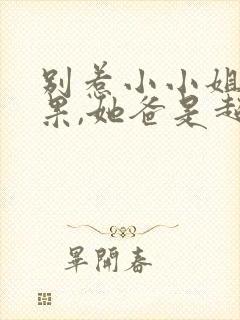 别惹小小姐
果,她爸是超
畢開春